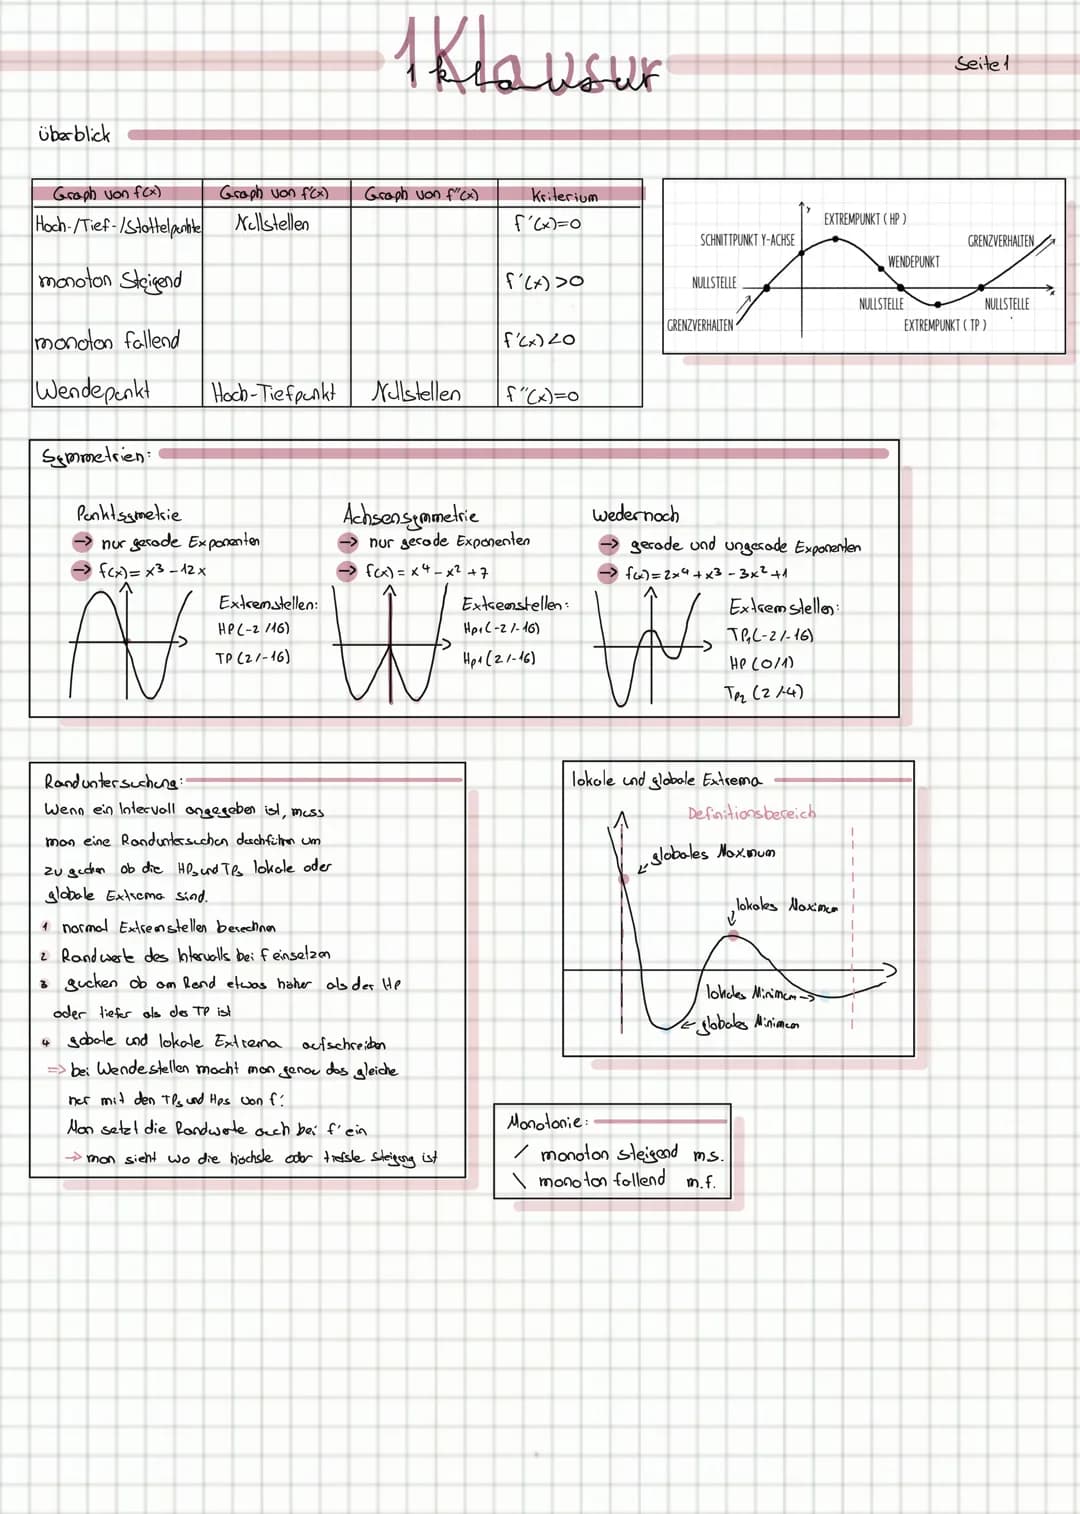 1 Klausur
1 klausur
Seite 1
überblick
Graph von f(x) Graph von f'(x) Graph von f''(x) Kriterium
Hoch-/Tief-/Sattelpunkte Nullstellen f'(x)=0
monoton Steigend f'(x)>0
monoton fallend f'(x)<0
Wendepunkt Hoch-Tiefpunkt Nullstellen f''(x)=0
y
EXTREMPUNKT (HP)
SCHNITTPUNKT Y-ACHSE
GRENZVERHALTEN
WENDEPUNKT
NULLSTELLE
x
NULLSTELLE
NULLSTELLE
GRENZVERHALTEN
EXTREMPUNKT (TP)
Symmetrien:
Punktsymetrie
→ nur gerade Exponenten
→ f(x)= x³-12x
Extremstellen:
HP(-2/16)
TP(2/-16)
Achsensymmetrie
→ nur gerade Exponenten
→ f(x)= x⁴-x²+7
Extremstellen:
Hp₁(-2/-16)
Hp₁(2/-16)
wedernoch
→ gerade und ungerade Exponenten
→ f(x)=2x⁴+x³-3x²+1
Extremstellen:
TP₁(-2/-16)
HP(0/1)
TP₂(2/-4)
Randuntersuchung:
Wenn ein Intervall angegeben ist, muss
man eine Randuntersuchen durchführen um
zu gucken ob die HPs und TPs lokale oder
globale Extrema sind.
1 normal Extremstellen berechnen
2 Randwerte des Intervalls bei f einsetzen
3 gucken ob am Rand etwas höher als der HP
oder tiefer als des TP ist
4 gobale und lokale Extrema aufschreiben
=> bei Wendestellen macht man genau das gleiche
nur mit den TPs und Hps von f'
Man setzt die Randwerte auch bei f' ein
→ man sieht wo die höchste oder tiefste Steigung ist
lokale und globale Extrema
Definitionsbereich
globales Maximum
lokales Maximum
lokales Minimum
← globales Minimum
Monotonie:
/ monoton steigend m.s.
\ monoton fallend m.f.